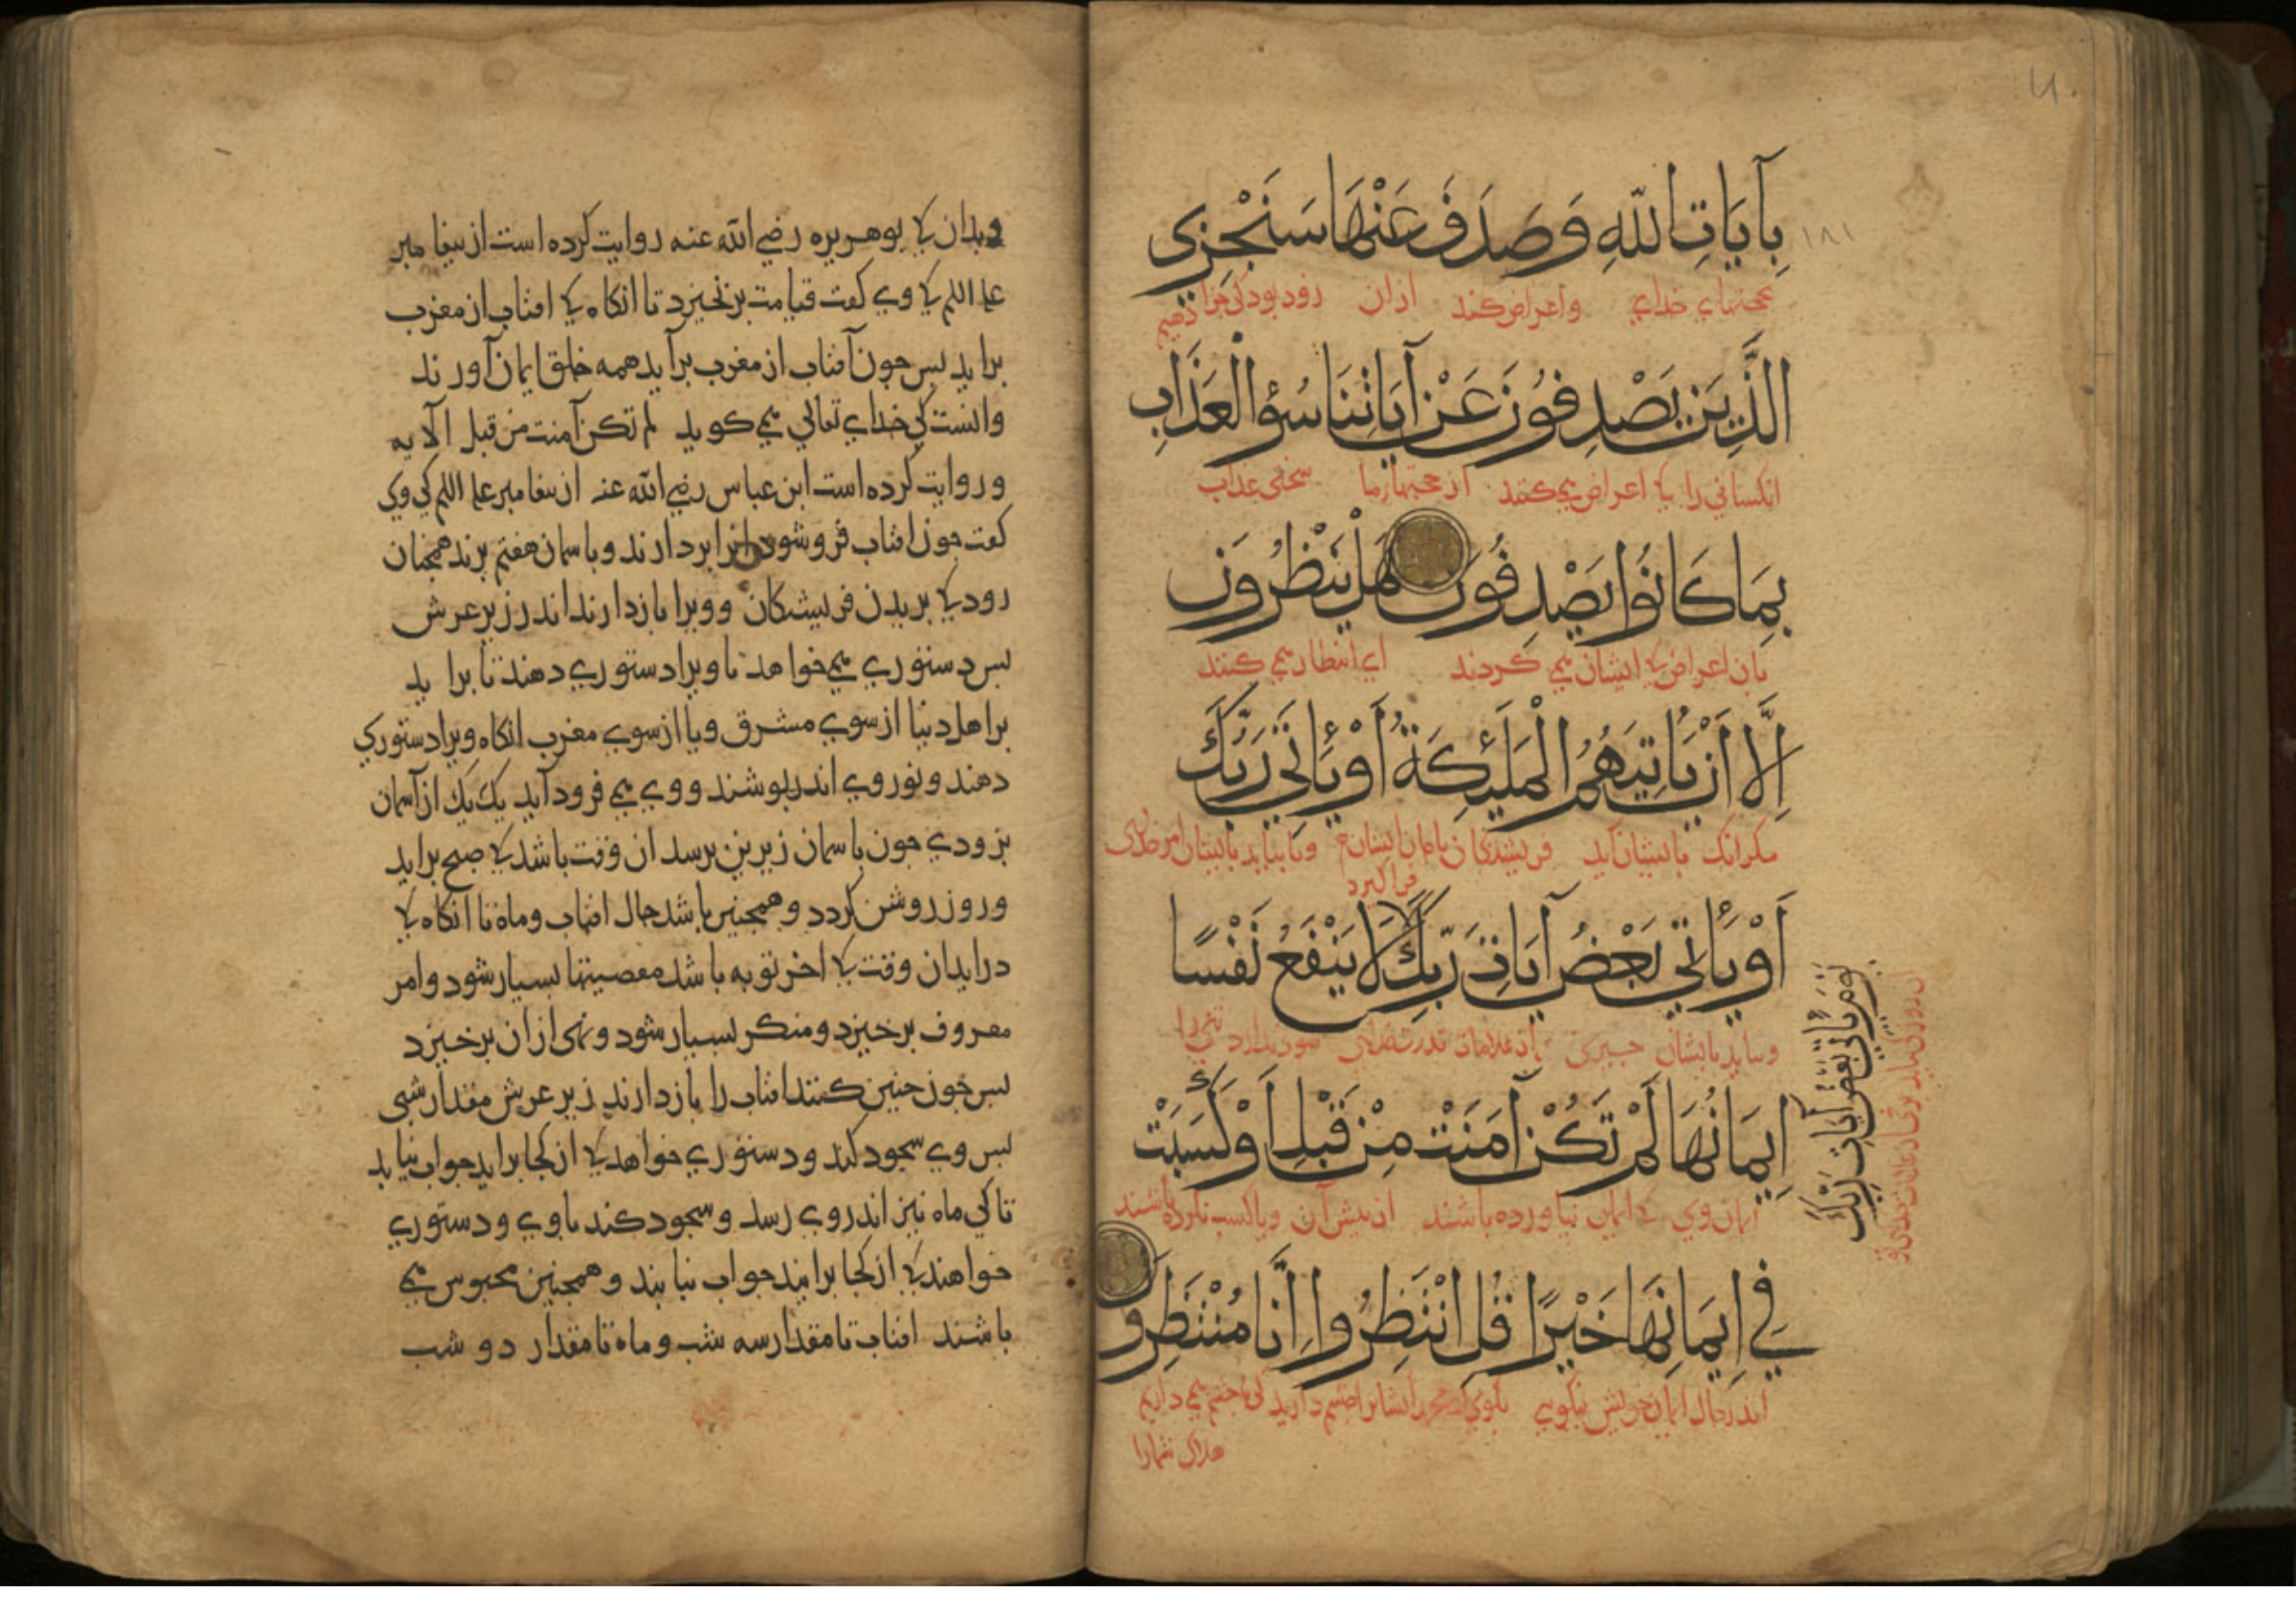 ١٨١
بِآيَاتِ اللّهِ وَصَدَفَ عَنْهَا سَنَجْزِي
بحجتهاي خداي واعراض كند ازان زود بود كي جزا دهيم
الَّذِينَ يَصْدِفُونَ عَنْ آيَاتِنَا سُوْٓءَ الْعَذَابِ
انكساني را كه اعراض مي كنند از حجتهاء ما سختي عذاب
بِمَا كَانُوا يَصْدِفُونَ هَلْ يَنْظُرُونَ
بان اعراض كه ايشان مي كردند اي انتظار مي كنند
اِلَّا أَنْ يَأتِيَهُمُ الْمَلَئِكَةُ أَوْ يَأتِيَ رَبُّكَ
مكر انك بايشان آيد فريشتكان
أَوْ يَأتِيَ بَعْضُ آيَاتِ رَبِّكَ لَا يَنْفَعُ نَفْسًا
ويا بيايد بايشان چيزي از علامات قدرت خداي سود ندارد تني را
اِيمَانُهَا لَمْ تَكُنْ آمَنَتْ مِنْ قَبْلُ أَوْ كَسَبَتْ
ايمان وي كه ايمان نياورده باشند از پيش آن ويا كسب نكرده باشند
فِي اِيمَانِهَا خَيْرًا قُلِ انْتَظِرُوا اِنَّا مُنْتَظِرُونَ
اندر حال ايمان خويش نيكوي بكوي
هلاك شمارا
يَوْمَ يَأتِي بَعْضُ آيَاتِ رَبِّكَ
وبدان كه بوهريره رضي الله عنه روايت كرده است از بيغامبر
علم اللم كه وي كفت قيامت برنخيزد تا انكاه كه افتاب از مغرب
برايد بس جون آفتاب از مغرب برآيد همه خلق ايمان آورند
وانست كي خداي تعالي مي كويد لم تكن آمنت من قبل الآيه
وروايت كرده است ابن عباس رضي الله عنه از بيغامبر علم اللم كي وي
كفت جون افتاب فروشود انرا بردارند وباسمان هفتم برند همجنان
زود كه بريدن فريشتكان وويرا بازدارند اندر زير عرش
بس دستوري مي خواهد تا ويرا دستوري دهند تا برايد
بر اهل دنيا از سوي مشرق ويا از سوي مغرب انكاه ويرا دستوري
دهند ونور وي اندربوشند ووي مي فرود آيد يك يك از آسمان
بزودي جون باسمان زيرين برسد ان وقت باشد كه صبح برايد
وروز روشن كردد وهمجنين باشد حال افتاب وماه تا انكاه كه
درايد ان وقت كه اخر توبه باشد معصيتها بسيار شود وامر
معروف برخيزد ومنكر بسيار شود ونهي از ان برخيزد
بس جون جنين كنند افتاب را بازدارند زير عرش مقدار شبي
بس وي سجود كند ودستوري خواهد كه از كجا برايد جواب نيابد
تا كي ماه نيز اندر وي رسد وسجود كند با وي ودستوري
خواهند كه از كجا برايند جواب نيابند وهمجنين محبوس مي
باشند افتاب تا مقدار سه شب وماه تا مقدار دو شب